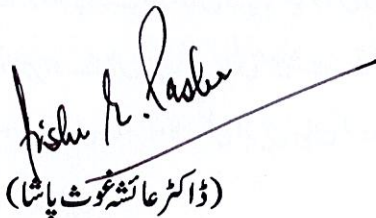 Aisha G. Pasha
(ڈاکٹر عائشہ غوث پاشا)